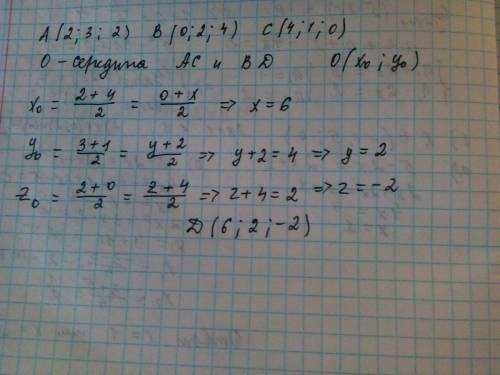 A(2;3;2) B(0;2;4) C(4;1;0)
O-середина AC и BD O(x₀;y₀)
x₀ = (2+4)/2 = (0+x)/2 => x=6
y₀ = (3+1)/2 = (y+2)/2 => y+2=4 => y=2
z₀ = (2+0)/2 = (z+4)/2 => z+4=2 => z=-2
D(6;2;-2)